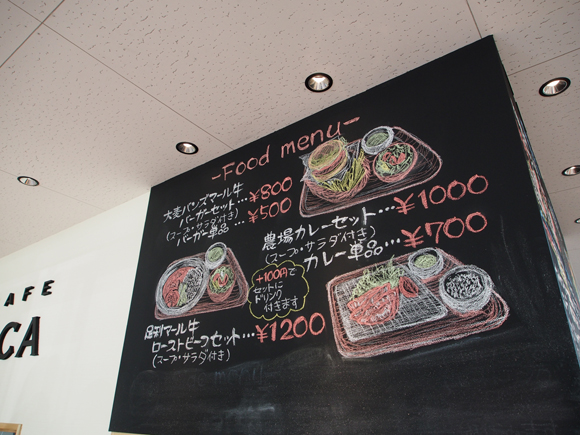 -Food menu-
大麦バンズマール牛
バーガーセット…¥800
(スープ・サラダ付き)
バーガー単品…¥500
農場カレーセット…¥1000
(スープ・サラダ付き)
カレー単品…¥700
+100円で
セットに
ドリンク
付きます
足利マール牛
ローストビーフセット…¥1200
(スープ・サラダ付き)
AFE
CA